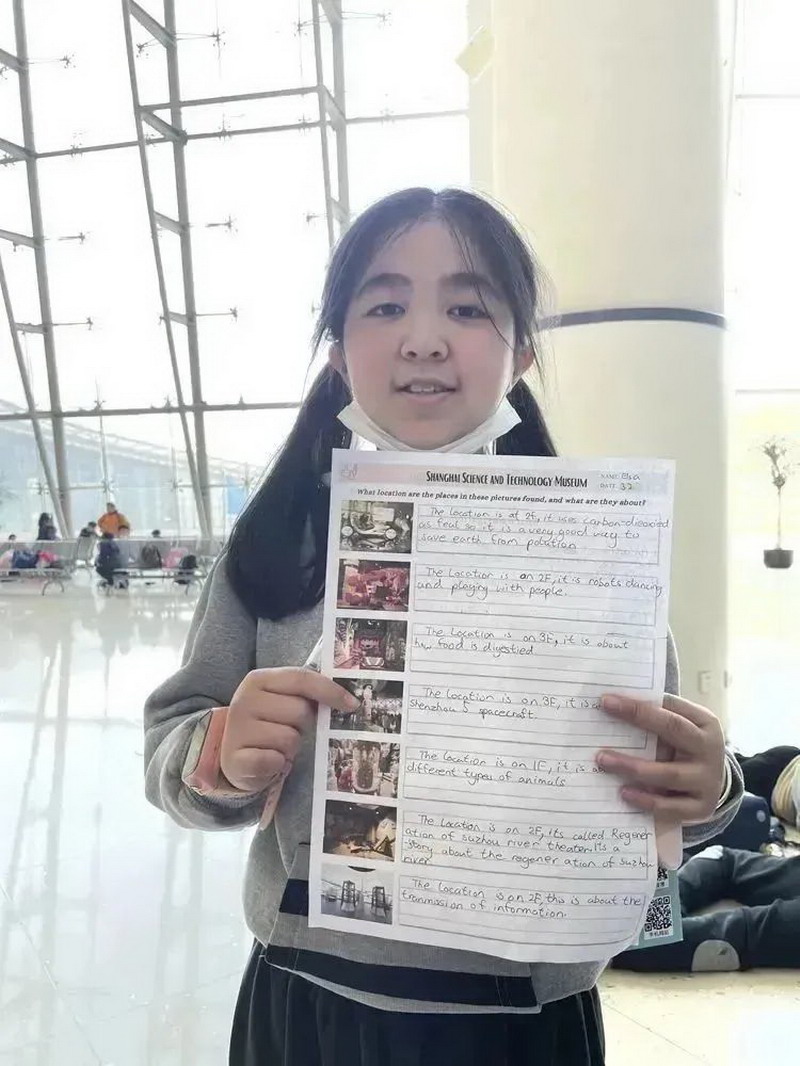 SHANGHAI SCIENCE AND TECHNOLOGY MUSEUM
NAME: Elsa
DATE: 32
What location are the places in these pictures found, and what are they about?
The location is at 2F, it uses carbon-dioxiod
as feal so it is a very good way to
save earth from polation
The Location is on 2F, it is robots dancing
and playing with people.
The Location is on 3F, it is about
how food is digestied
The Location is on 3F, it is a
Shenzhou 5 spacecraft.
The Location is on 1F, it is ab
different types of animals
The Location is on 2F, its called Regener
ation of suzhou river theater. It's a
story about the regener ation of suzhou
river
The Location is on 2F, this is about the
tranmission of information.